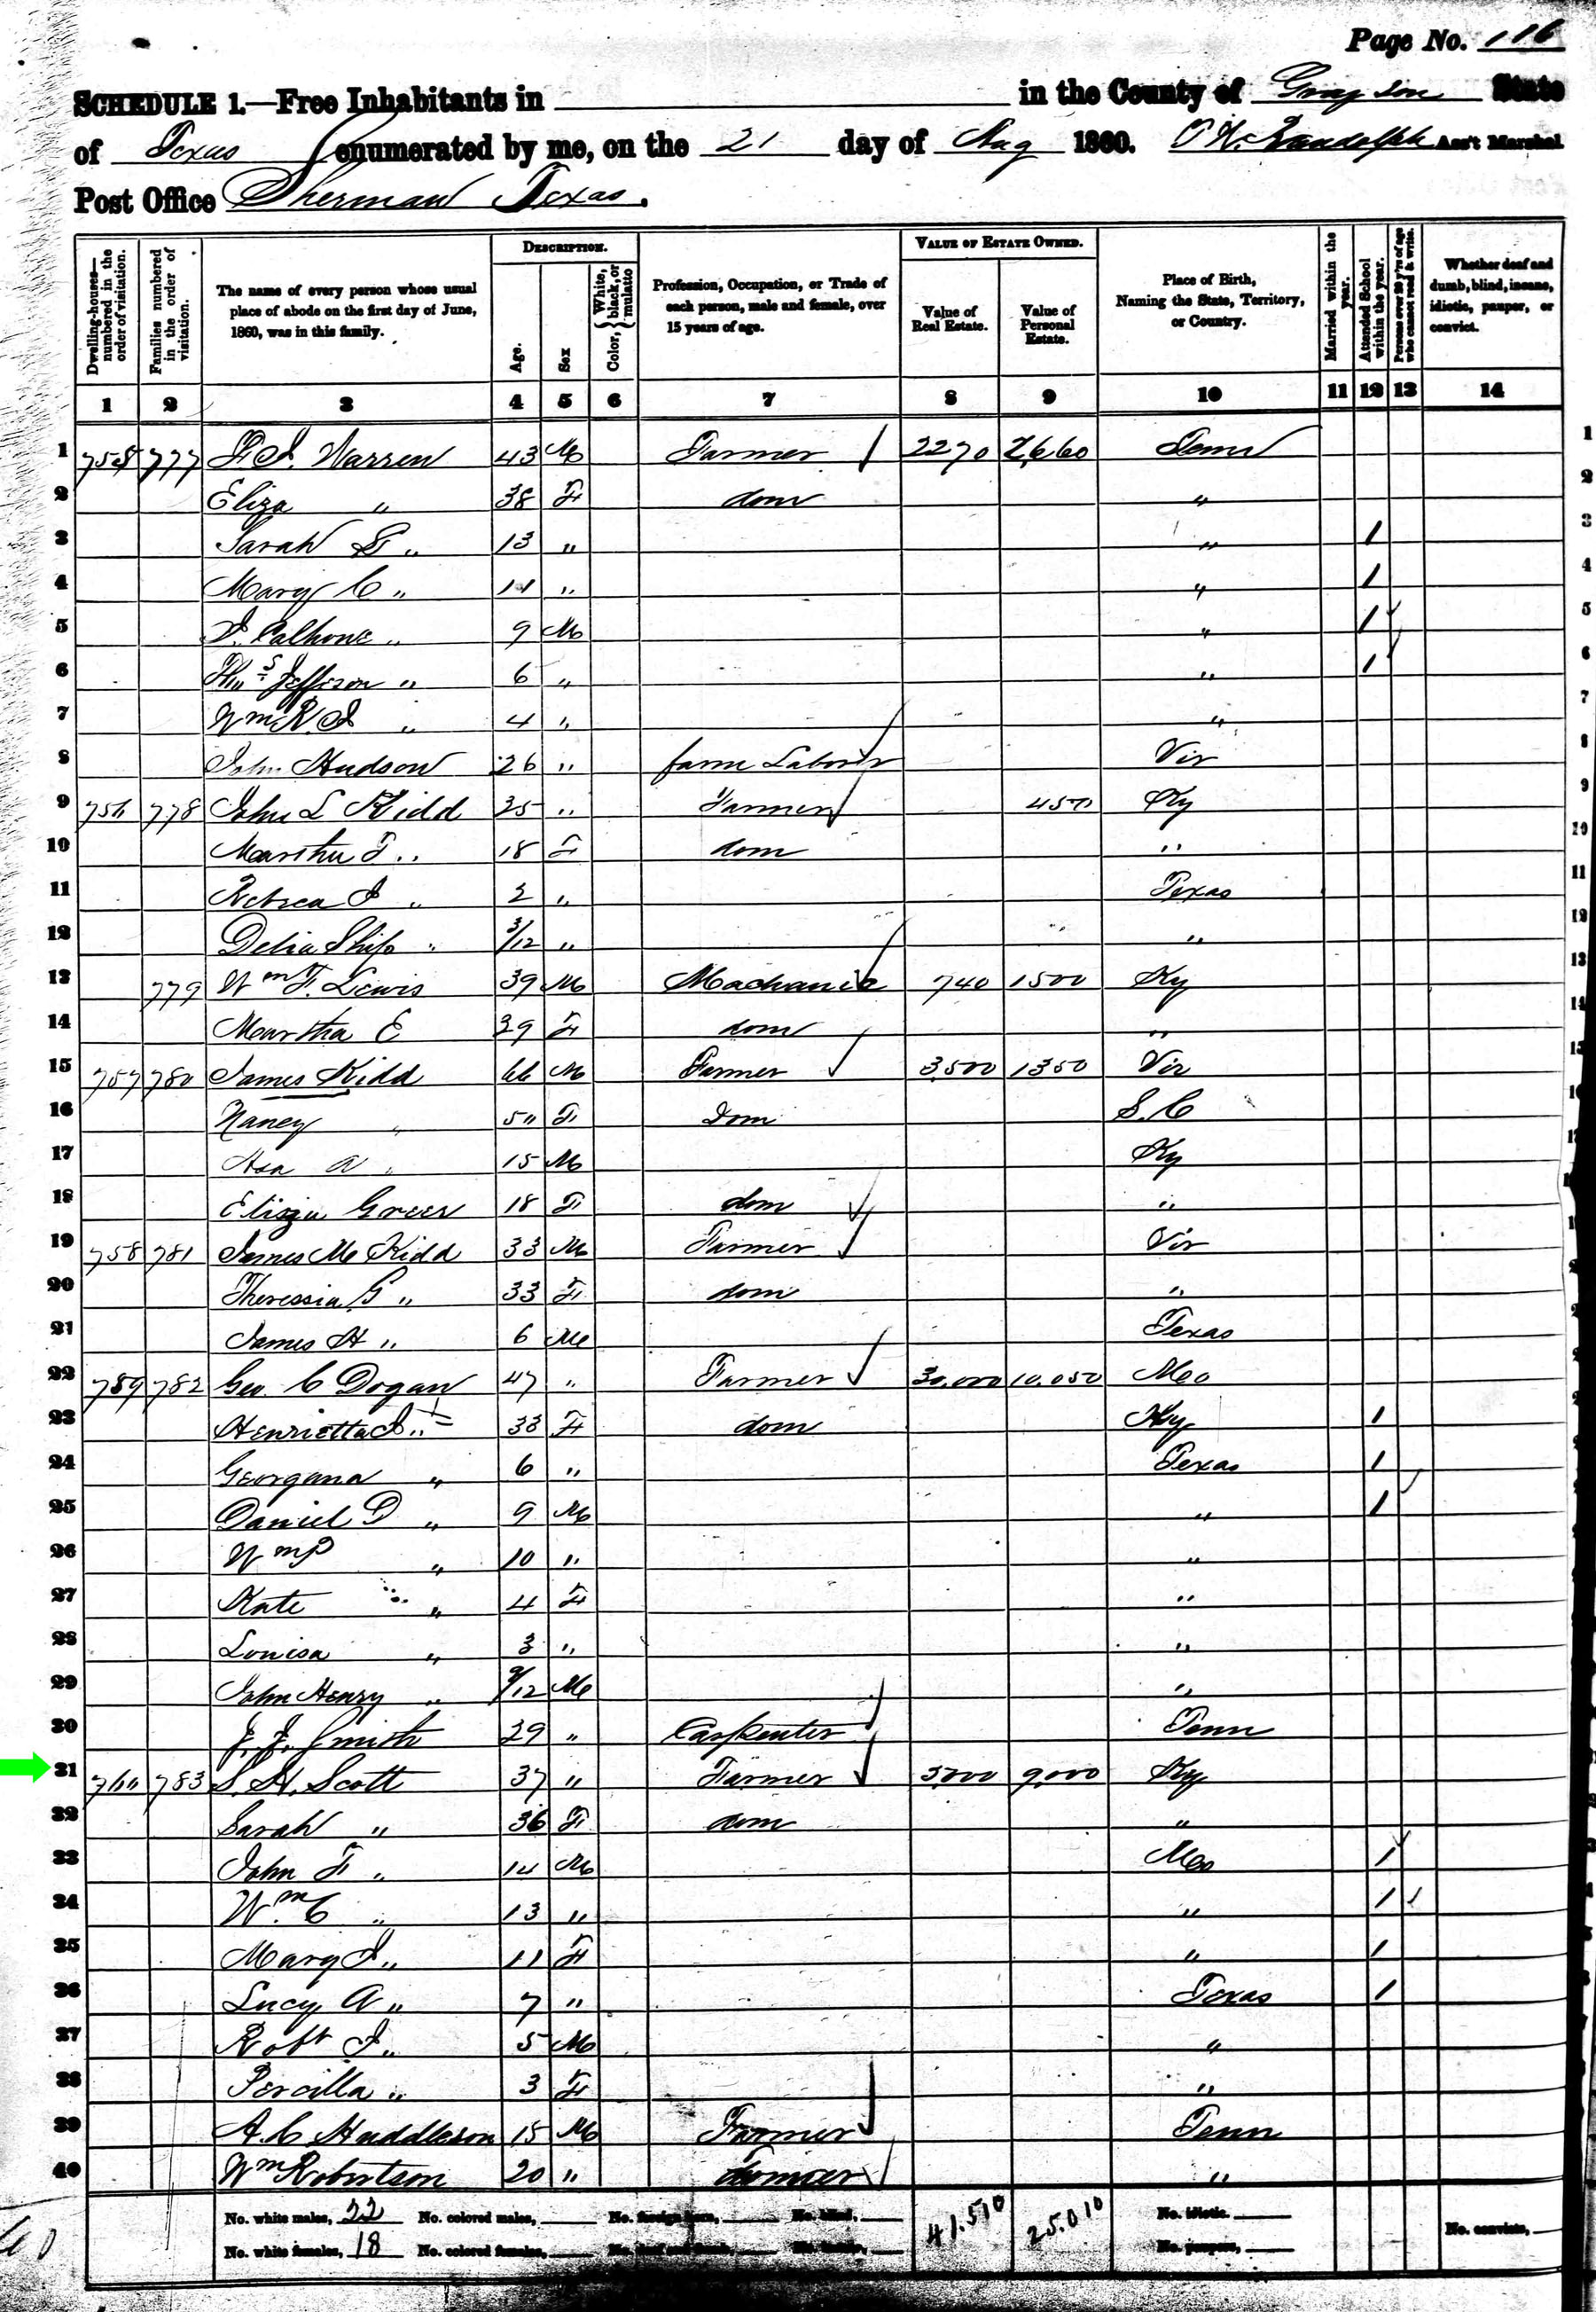 Page No. 116
SCHEDULE 1.—Free Inhabitants in ______ in the County of Grayson State
of Texas enumerated by me, on the 21 day of Aug 1860. Randolph Ass't Marshal
Post Office Sherman Texas.
Dwelling-houses—numbered in the order of visitation. Families numbered in the order of visitation. The name of every person whose usual place of abode on the first day of June, 1860, was in this family. DESCRIPTION. Age. Sex Color, White, black, or mulatto Profession, Occupation, or Trade of each person, male and female, over 15 years of age. VALUE OF ESTATE OWNED. Value of Real Estate. Value of Personal Estate. Place of Birth, Naming the State, Territory, or Country. Married within the year. Attended School within the year. Persons over 20 y'rs of age who cannot read & write. Whether deaf and dumb, blind, insane, idiotic, pauper, or convict.
1 2 3 4 5 6 7 8 9 10 11 12 13 14
1 755 777 Warren 43 M Farmer 2270 2,660 Tenn 1
2 Eliza " 38 F dom " 2
3 Sarah " 13 " " / 3
4 Mary C " 11 " " / 4
5 J. Calhone " 9 M " / 5
6 Jefferson " 6 " " / 6
7 Wm R. J " 4 " " 7
8 John Hudson 26 " farm Laborer Vir 8
9 756 778 John L Kidd 25 " Farmer 450 Ky 9
10 Martha F. " 18 F dom " 10
11 Rebeca J " 2 " Texas 11
12 Delia Ship " 3/12 " " 12
13 779 Wm F. Lewis 39 M Mechanic 740 1500 Ky 13
14 Martha E 29 F dom " 14
15 757 780 James Kidd 66 M Farmer 3,500 1350 Vir
16 Nancy " 50 F Dom S. C
17 Asa A " 15 M Ky
18 Eliza Greer 18 F dom "
19 758 781 James M Kidd 33 M Farmer Vir
20 Theressia G " 33 F dom "
21 James H " 6 M Texas
22 759 782 Geo. C Dogan 47 " Farmer 30,000 10,050 Mo
23 Henrietta J " 33 F dom Ky /
24 Georgana " 6 " Texas /
25 Daniel D " 9 M " /
26 Wm P " 10 " "
27 Kate " 4 F "
28 Louisa " 3 " "
29 John Henry " 9/12 M "
30 J. J. Smith 29 " Carpenter Tenn
31 760 783 S. H. Scott 37 " Farmer 5000 9,000 Ky
32 Sarah " 36 F dom "
33 John F " 14 M Mo /
34 Wm. C " 13 " " /
35 Mary J " 11 F " /
36 Lucy A " 7 " Texas /
37 Robt J " 5 M "
38 Percilla " 3 F "
39 A. C Huddleson 15 M Farmer Tenn
40 Wm Robertson 20 " Farmer "
No. white males, 22 No. colored males, No. foreign born, No. blind, 41.510 25.010 No. idiotic.
No. white females, 18 No. colored females, No. paupers, No. convicts,